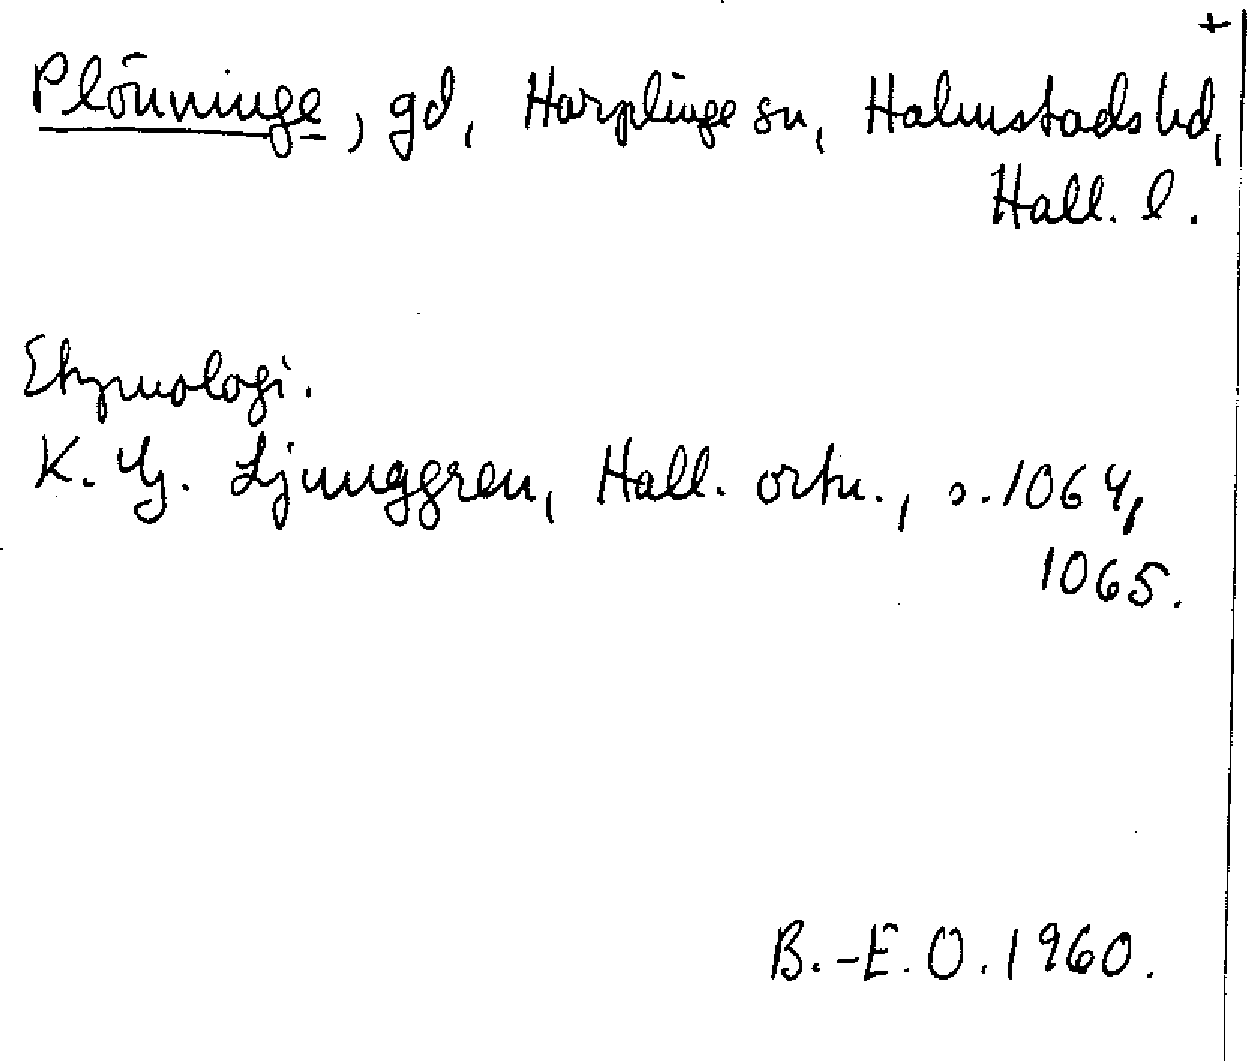 +
Plönninge, gd, Harplinge sn, Halmstads hd,
Hall. l.
Etymologi.
K. G. Ljunggren, Hall. ortn., s. 1064,
1065.
B.-E. O. 1960.